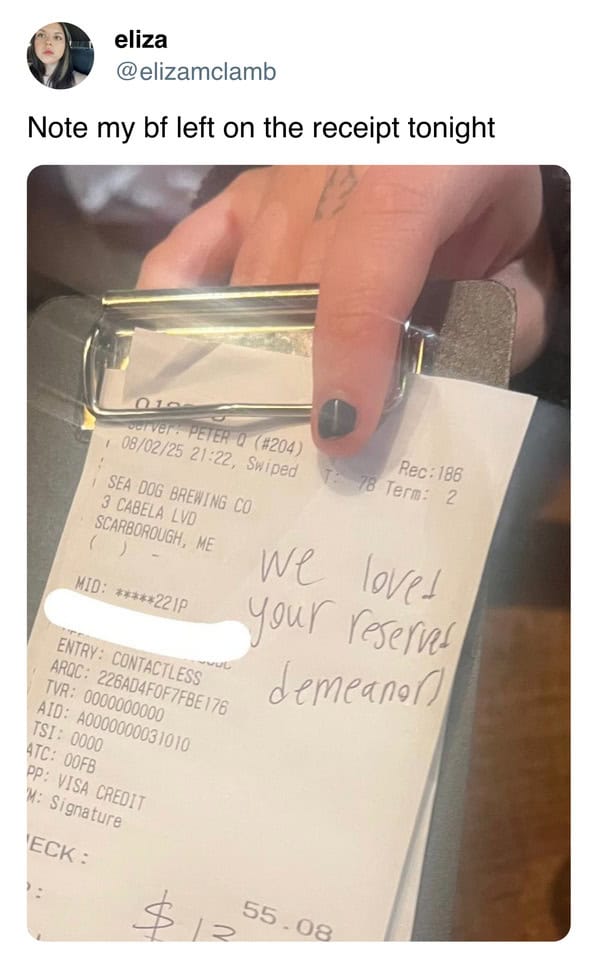 eliza
@elizamclamb
Note my bf left on the receipt tonight
Server: PETER Q (#204)
Rec:186
08/02/25 21:22, Swiped T: 78 Term: 2
SEA DOG BREWING CO
3 CABELA LVD
SCARBOROUGH, ME
( ) -
we loved
your reserved
demeanor)
MID: *****221P
ENTRY: CONTACTLESS
ARQC: 226AD4F0F7FBE176
TVR: 0000000000
AID: A0000000031010
TSI: 0000
ATC: 00FB
PP: VISA CREDIT
M: Signature
ECK:
55.08
$ 12